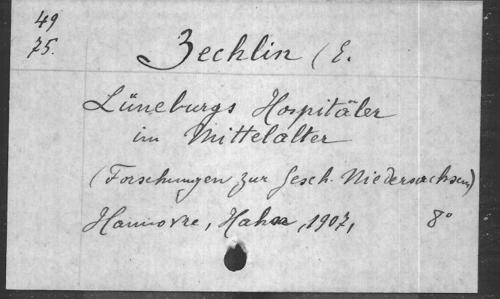 49
75.
Zechlin (E.
Lüneburgs Hospitäler
im Mittelalter
(Forschungen zur Gesch. Niedersachsen)
Hannovre, Hahn, 1907, 8°